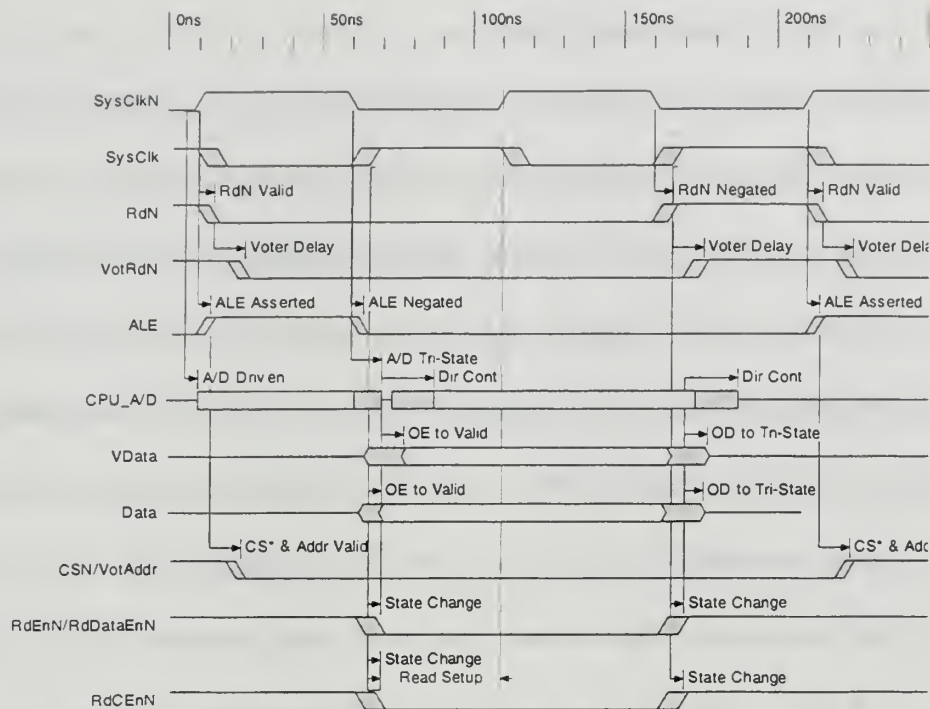 0ns 50ns 100ns 150ns 200ns
SysClkN
SysClk
RdN Valid RdN Negated RdN Valid
RdN
Voter Delay Voter Delay Voter Dela
VotRdN
ALE Asserted ALE Negated ALE Asserted
ALE
A/D Tri-State
A/D Driven Dir Cont Dir Cont
CPU_A/D
OE to Valid OD to Tri-State
VData
OE to Valid OD to Tri-State
Data
CS* & Addr Valid CS* & Add
CSN/VotAddr
State Change State Change
RdEnN/RdDataEnN
State Change
Read Setup State Change
RdCEnN